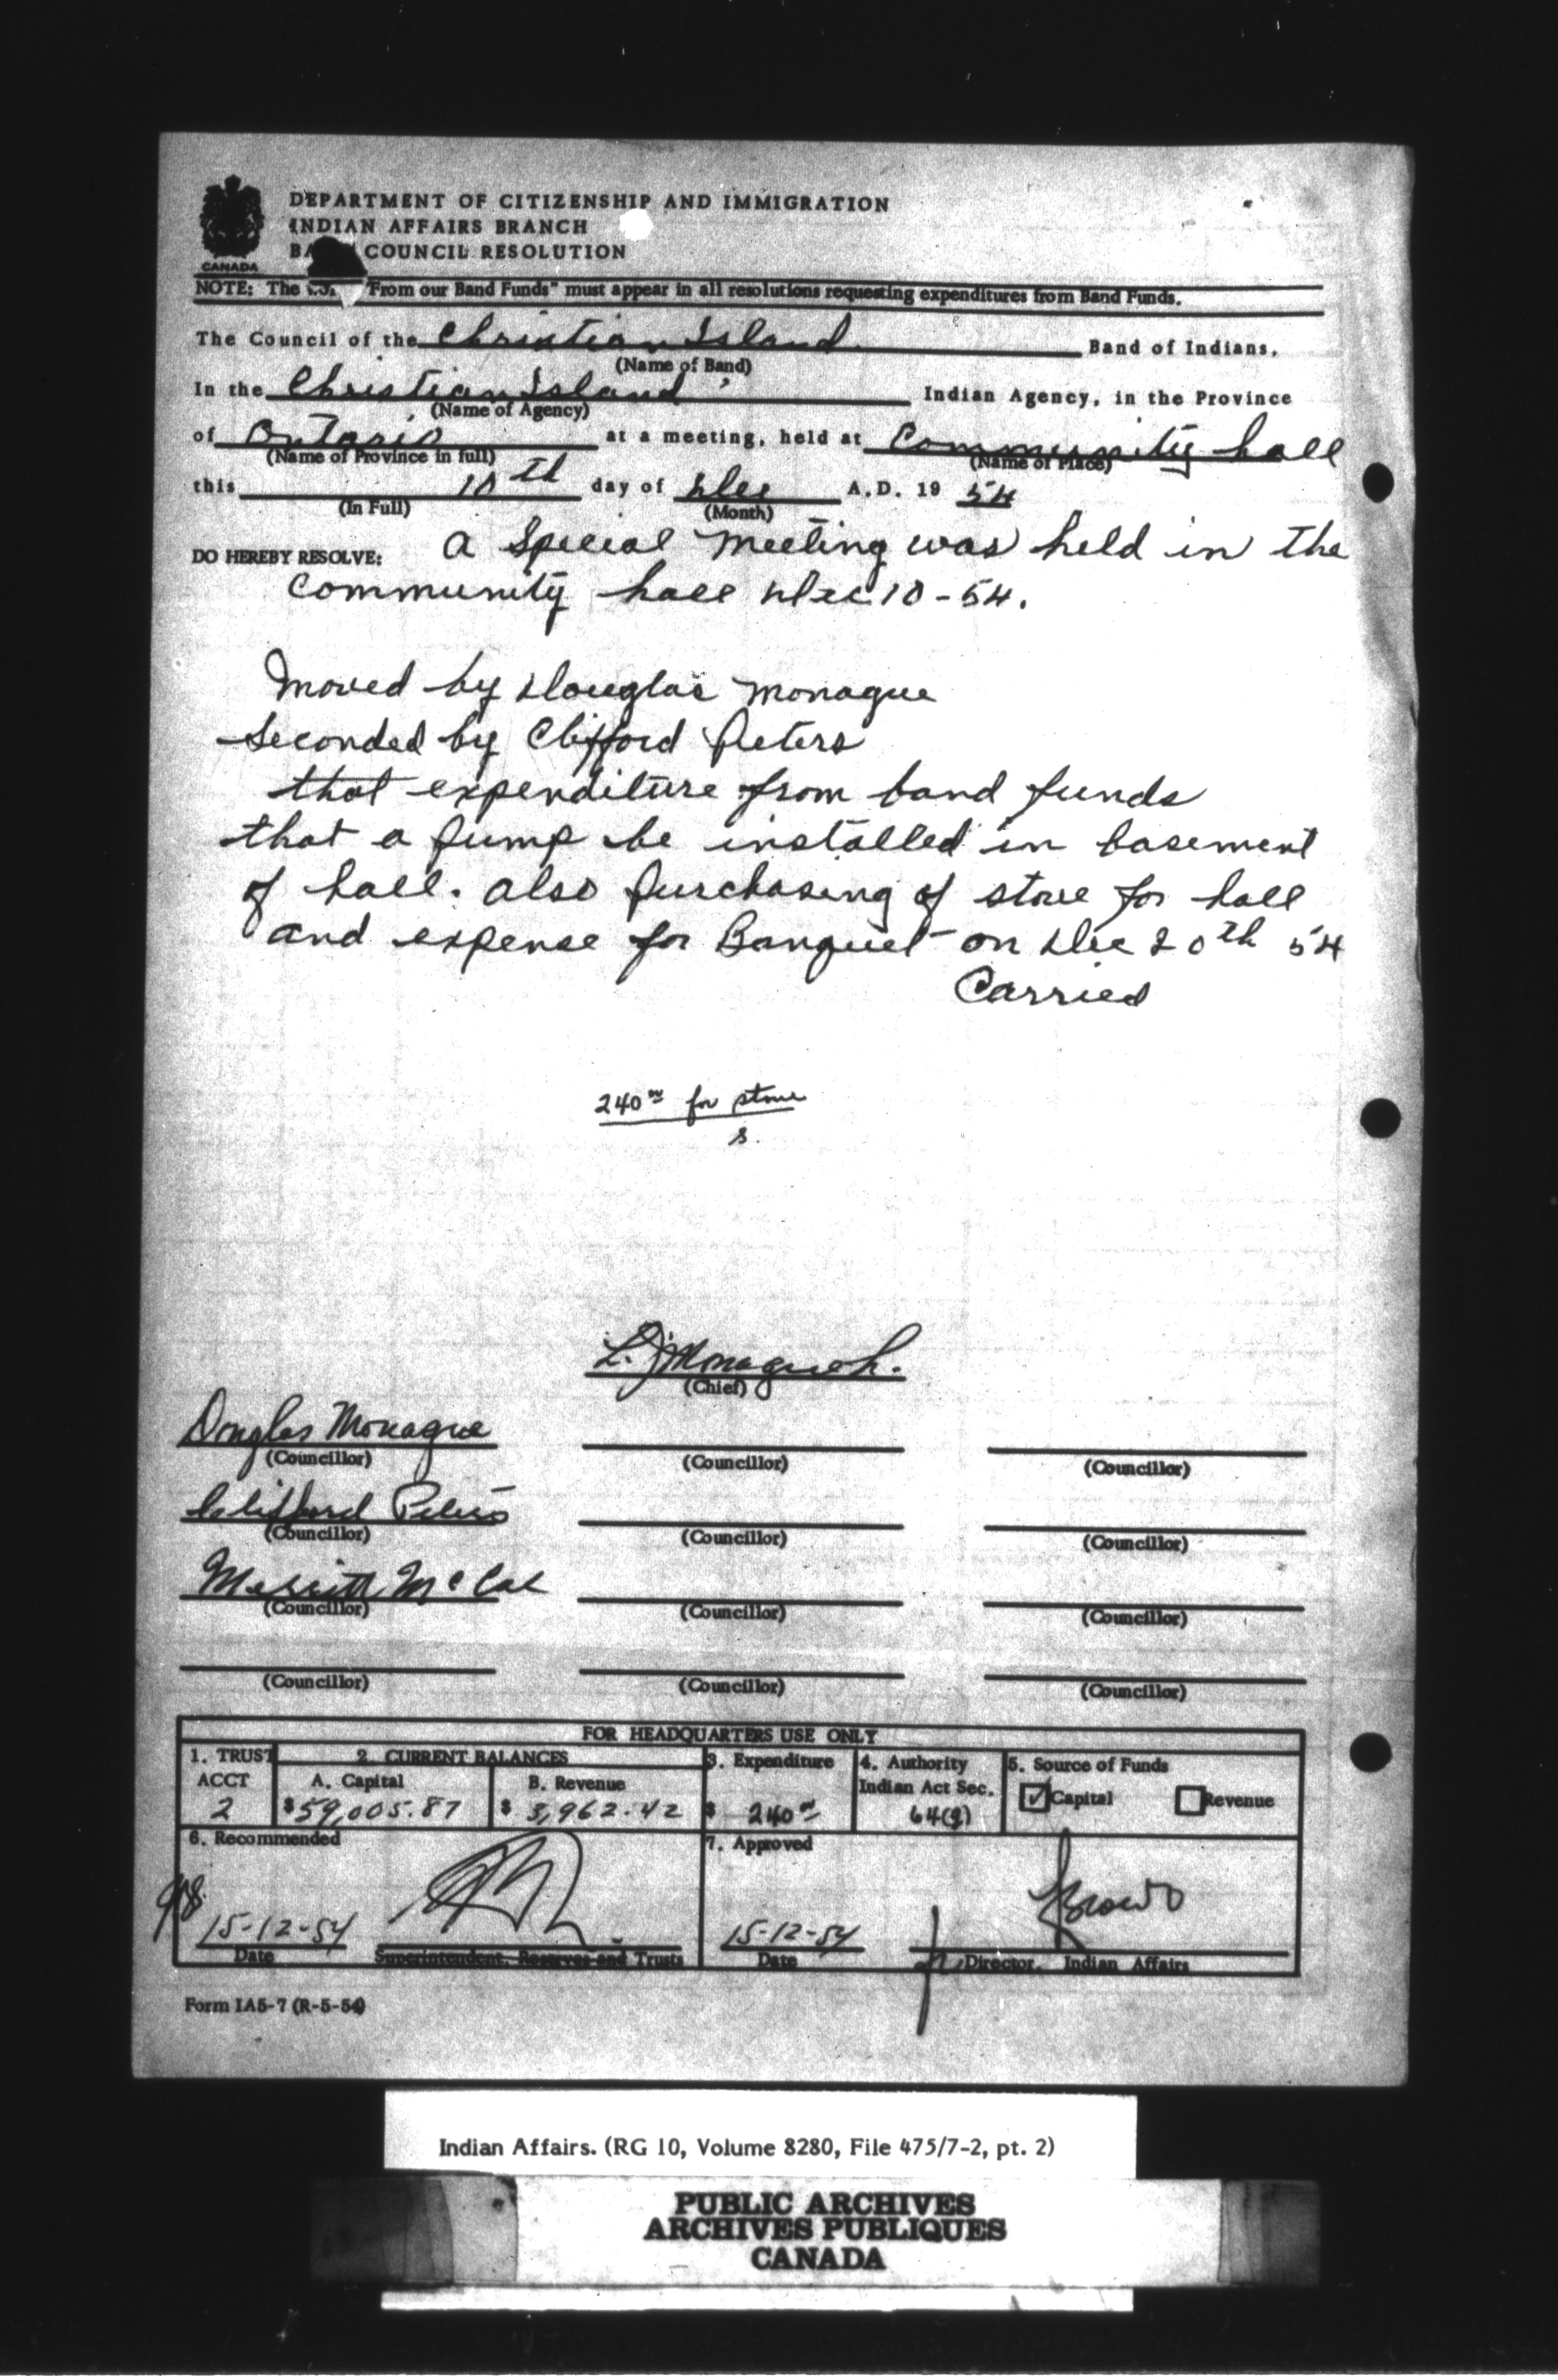 DEPARTMENT OF CITIZENSHIP AND IMMIGRATION
INDIAN AFFAIRS BRANCH
COUNCIL RESOLUTION
CANADA
NOTE: The "From our Band Funds" must appear in all resolutions requesting expenditures from Band Funds.
The Council of the Christian Island Band of Indians,
(Name of Band)
In the Christian Island Indian Agency, in the Province
(Name of Agency)
of Ontario at a meeting, held at Community hall
(Name of Province in full) (Name of Place)
this 10th day of Dec A.D. 19 54
(In Full) (Month)
DO HEREBY RESOLVE: a Special Meeting was held in the
Community hall Dec 10-54.
Moved by Douglas Monague
Seconded by Clifford Peters
that expenditure from band funds
that a pump be installed in basement
of hall. also purchasing of stove for hall
and expense for Banquet on Dec 20th 54
Carried
240 for stove
L. J. Monague
(Chief)
Douglas Monague
(Councillor) (Councillor) (Councillor)
Clifford Peters
(Councillor) (Councillor) (Councillor)
Merritt McCue
(Councillor) (Councillor) (Councillor)
(Councillor) (Councillor) (Councillor)
FOR HEADQUARTERS USE ONLY
1. TRUST ACCT 2
2. CURRENT BALANCES
A. Capital $59,005.87
B. Revenue $3,962.42
3. Expenditure $240
4. Authority Indian Act Sec. 64(g)
5. Source of Funds
✓ Capital Revenue
6. Recommended
15-12-54
Date Superintendent, Reserves and Trusts
7. Approved
15-12-54
Date Director, Indian Affairs
Form IA5-7 (R-5-54)
Indian Affairs. (RG 10, Volume 8280, File 475/7-2, pt. 2)
PUBLIC ARCHIVES
ARCHIVES PUBLIQUES
CANADA